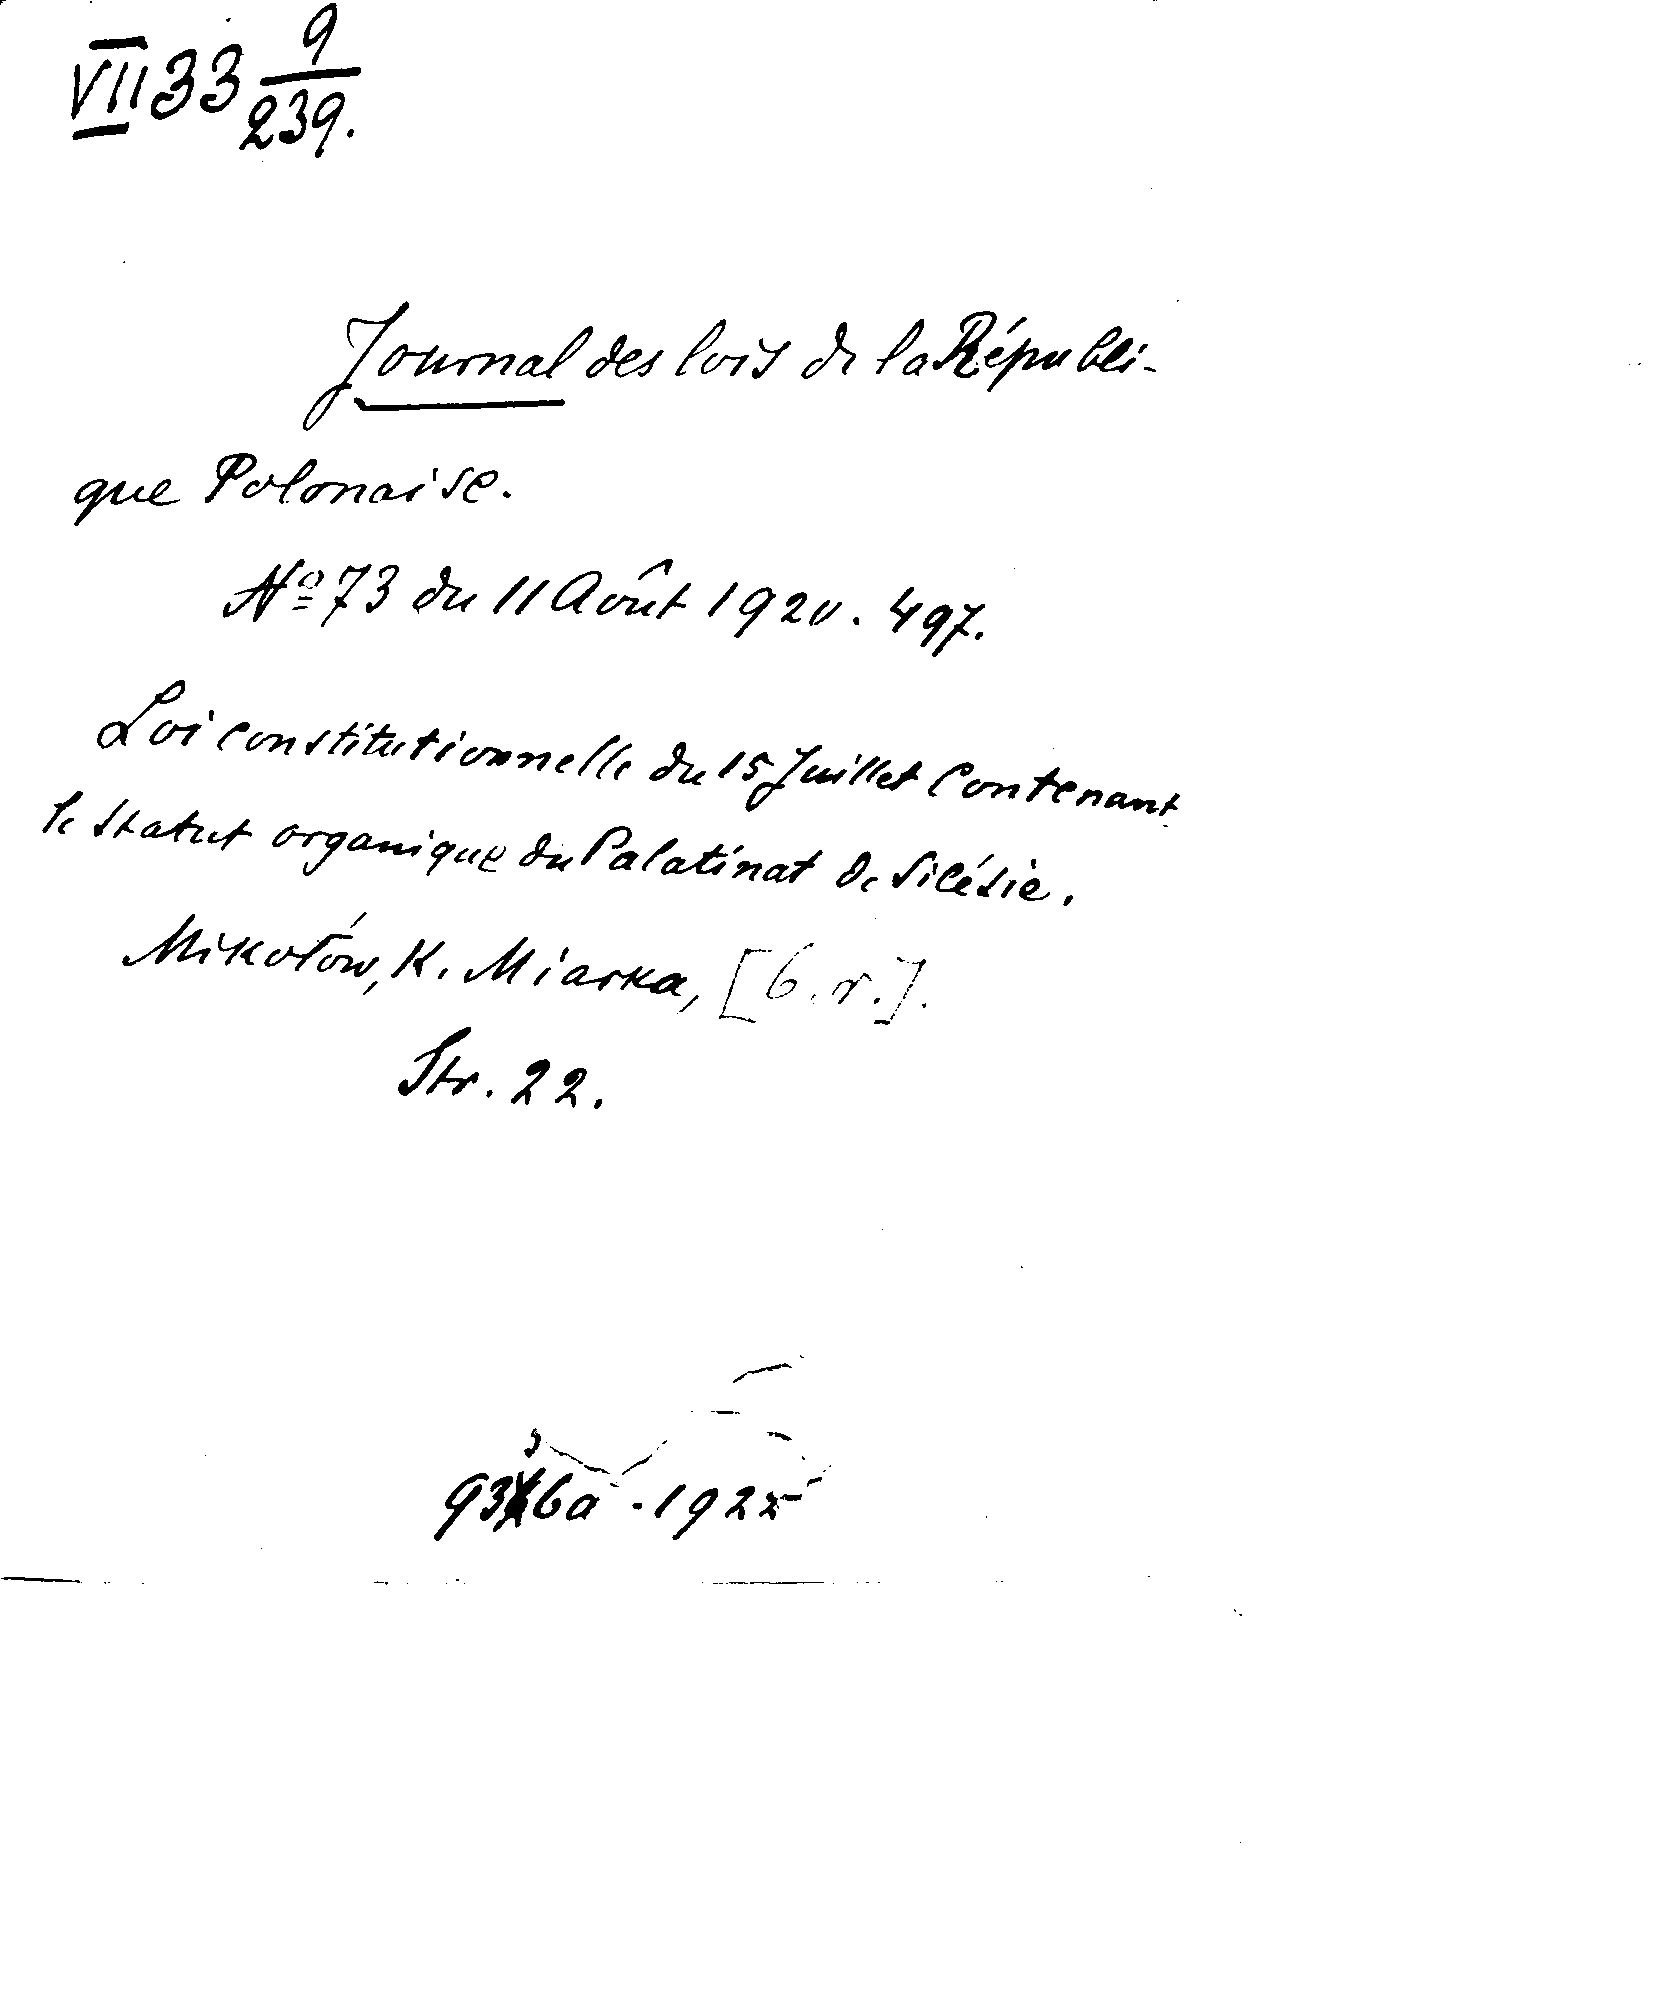 VII 33 9/239.
Journal des lois de la Républi-
que Polonaise.
Nº 73 du 11 Août 1920. 497.
Loi constitutionnelle du 15 Juillet contenant
le statut organique du Palatinat de Silésie.
Mikołów, K. Miarka, [b.r.].
Str. 22.
1922